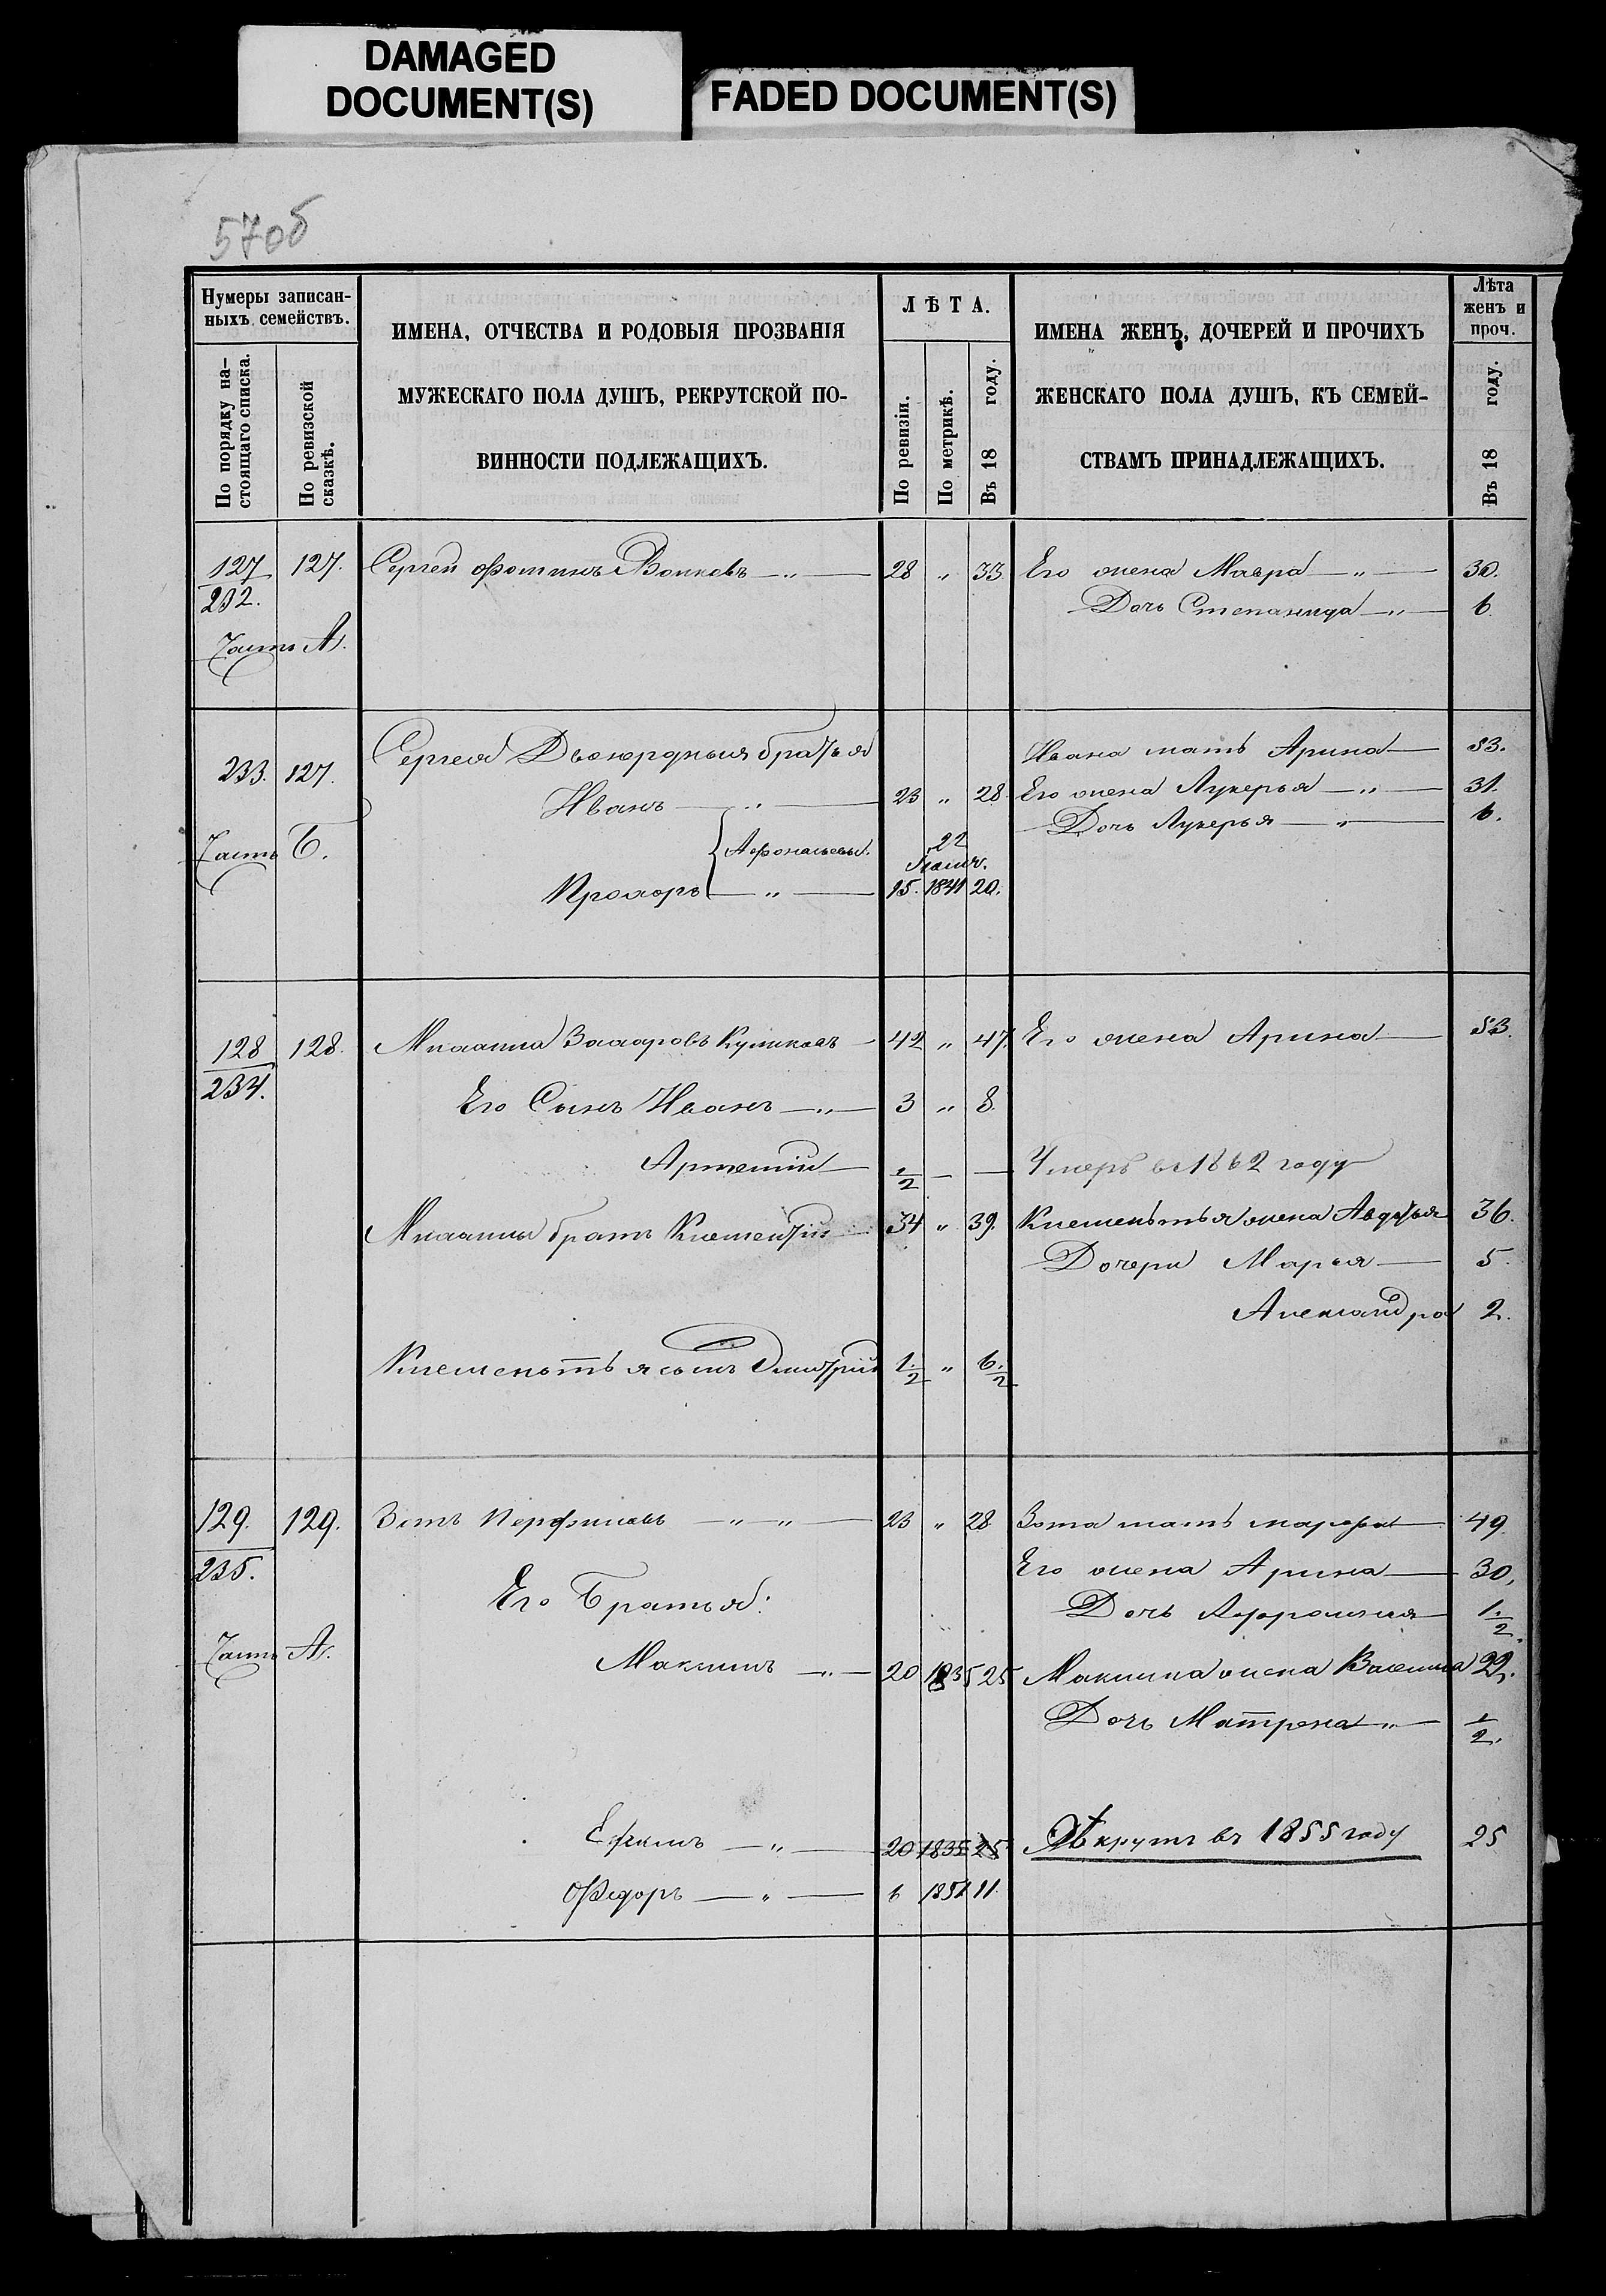 DAMAGED
DOCUMENT(S)
FADED DOCUMENT(S)
57об
Нумеры записан-
ныхъ семействъ.
По порядку на-
стоящаго списка.
По ревизской
сказкѣ.
ИМЕНА, ОТЧЕСТВА И РОДОВЫЯ ПРОЗВАНІЯ
МУЖЕСКАГО ПОЛА ДУШЪ, РЕКРУТСКОЙ ПО-
ВИННОСТИ ПОДЛЕЖАЩИХЪ.
ЛѢТА.
По ревизіи.
По метрикѣ.
Въ 18 году.
ИМЕНА ЖЕНЪ, ДОЧЕРЕЙ И ПРОЧИХЪ
ЖЕНСКАГО ПОЛА ДУШЪ, КЪ СЕМЕЙ-
СТВАМЪ ПРИНАДЛЕЖАЩИХЪ.
Лѣта
женъ и
проч.
Въ 18 году.
127 127. Сергей Фотинъ Волковъ 28 " 33 Его жена Мавра 30.
232. Дочь Степанида 6
Часть А.
Сергея Двоюродныя братья Ивана мать Арина 53.
233. 127. Иванъ 23 " 28. Его жена Лукерья 31.
Дочь Лукерья 6.
Часть Б. Афонасьевы. 22
Прохоръ 15. 1841 20.
128 128. Захаровъ Куликовъ 42 " 47. Его жена Арина 53.
234. Его Сынъ Иванъ 3 " 8.
Артемій 1/2 — — Умеръ въ 1862 году
братъ Клементій 34 " 39. Клементья жена Авдотья 36.
Дочери Марья 5.
Александра 2.
Клементья сынъ Дмитрій 1/2 " 6/2
129. 129. Зотъ Перфиловъ 23 " 28 Зота мать Марфа 49.
235. Его жена Арина 30.
Его Братья: Дочь 1/2.
Часть А. Максимъ 20 1835 25 Максима жена Василиса 22.
Дочь Матрена 1/2.
Ефимъ 20 1835 25 Рѣкрутъ въ 1855 году 25
Федоръ 6 1851 11.